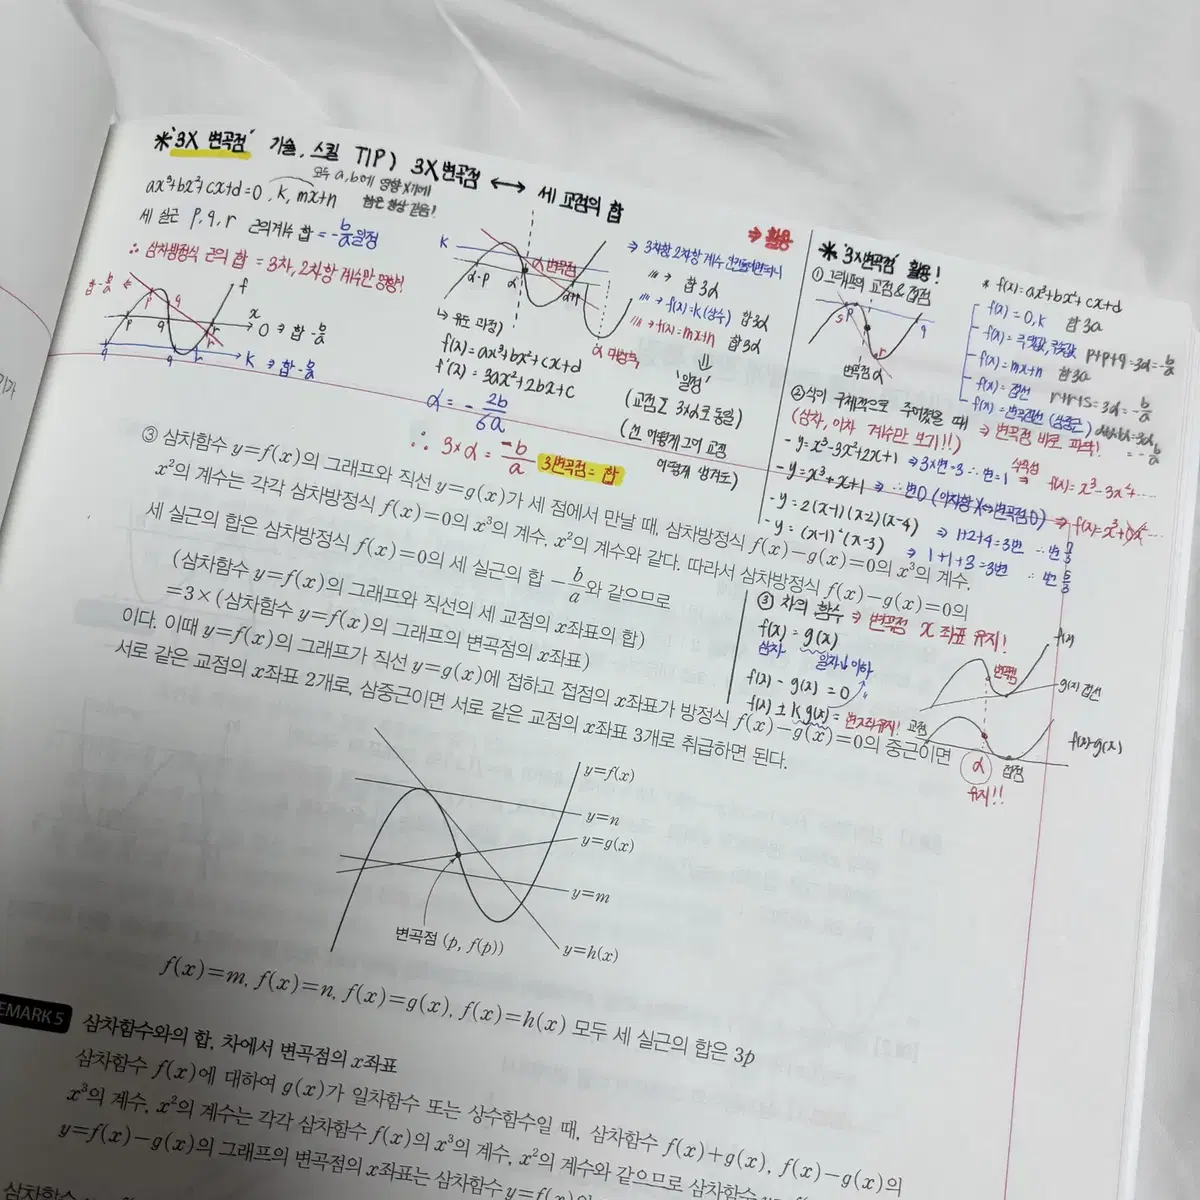 *"3X 변곡점" 기술, 스킬 TIP) 3X변곡점 ↔ 세 교점의 합
ax³+bx²+cx+d=0, k, mx+n
세 실근 p, q, r 근의계수 합 = -b/a 일정
∴ 삼차방정식 근의 합 = 3차, 2차항 계수만 영향!
합 -b/a
p q r f x
0 ⇒ 합 -b/a
k ⇒ 합 -b/a
k
α-p α α 변곡점
↳ 유도 과정)
f(x)=ax³+bx²+cx+d
f'(x)=3ax²+2bx+c
α = -2b/6a
∴ 3×α = -b/a 3변곡점=합
⇒ 활용
합 3α
⇒ f(x)=k(상수) 합3α
⇒ f(x)=mx+n 합3α
"일정"
(교점 Σ 3×α로 동일)
(선 어떻게 그어 교점
어떻게 생겨도)
* "3×변곡점" 활용!
① 그래프의 교점&접점
변곡점 α
* f(x)=ax³+bx²+cx+d
f(x)=0, k 합3α
f(x)=극댓값, 극솟값 p+p+q=3α=-b/a
f(x)=mx+n 합3α
f(x)=접선 r+r+s=3α=-b/a
② 식이 구체적으로 주어졌을 때 ⇒ 변곡점 바로 파악!
(삼차, 이차 계수만 보기!!)
- y=x³-3x²+2x+1 ⇒ 3×변=3 ∴ 변=1 ⇒ f(x)=x³-3x²+····
- y=x³+x+1 ⇒ ∴ 변0 (이차항X↔변곡점0) ⇒ f(x)=x³+0x²····
- y=2(x-1)(x-2)(x-4) ⇒ 1+2+4=3변 ∴ 변 7/3
- y=(x-1)²(x-3) ⇒ 1+1+3=3변 ∴ 변 5/3
③ 차의 함수 ⇒ 변곡점 x좌표 유지!
f(x)=g(x)
삼차 일차나 이하
f(x)-g(x)=0
f(x)±kg(x)= 변x좌유지!
f(x)
변곡점
g(x) 접선
교점
f(x)-g(x)
α 접점
유지!!
③ 삼차함수 y=f(x)의 그래프와 직선 y=g(x)가 세 점에서 만날 때, 삼차방정식 f(x)-g(x)=0의 x³의 계수,
x²의 계수는 각각 삼차방정식 f(x)=0의 x³의 계수, x²의 계수와 같다. 따라서 삼차방정식 f(x)-g(x)=0의
세 실근의 합은 삼차방정식 f(x)=0의 세 실근의 합 -b/a와 같으므로
(삼차함수 y=f(x)의 그래프와 직선의 세 교점의 x좌표의 합)
=3×(삼차함수 y=f(x)의 그래프의 변곡점의 x좌표)
이다. 이때 y=f(x)의 그래프가 직선 y=g(x)에 접하고 접점의 x좌표가 방정식 f(x)-g(x)=0의 중근이면
서로 같은 교점의 x좌표 2개로, 삼중근이면 서로 같은 교점의 x좌표 3개로 취급하면 된다.
y=f(x)
y=n
y=g(x)
y=m
y=h(x)
변곡점 (p, f(p))
f(x)=m, f(x)=n, f(x)=g(x), f(x)=h(x) 모두 세 실근의 합은 3p
EMARK 5 삼차함수와의 합, 차에서 변곡점의 x좌표
삼차함수 f(x)에 대하여 g(x)가 일차함수 또는 상수함수일 때, 삼차함수 f(x)+g(x), f(x)-g(x)의
x³의 계수, x²의 계수는 각각 삼차함수 f(x)의 x³의 계수, x²의 계수와 같으므로 삼차함수
y=f(x)-g(x)의 그래프의 변곡점의 x좌표는 삼차함수 y=f(x)의